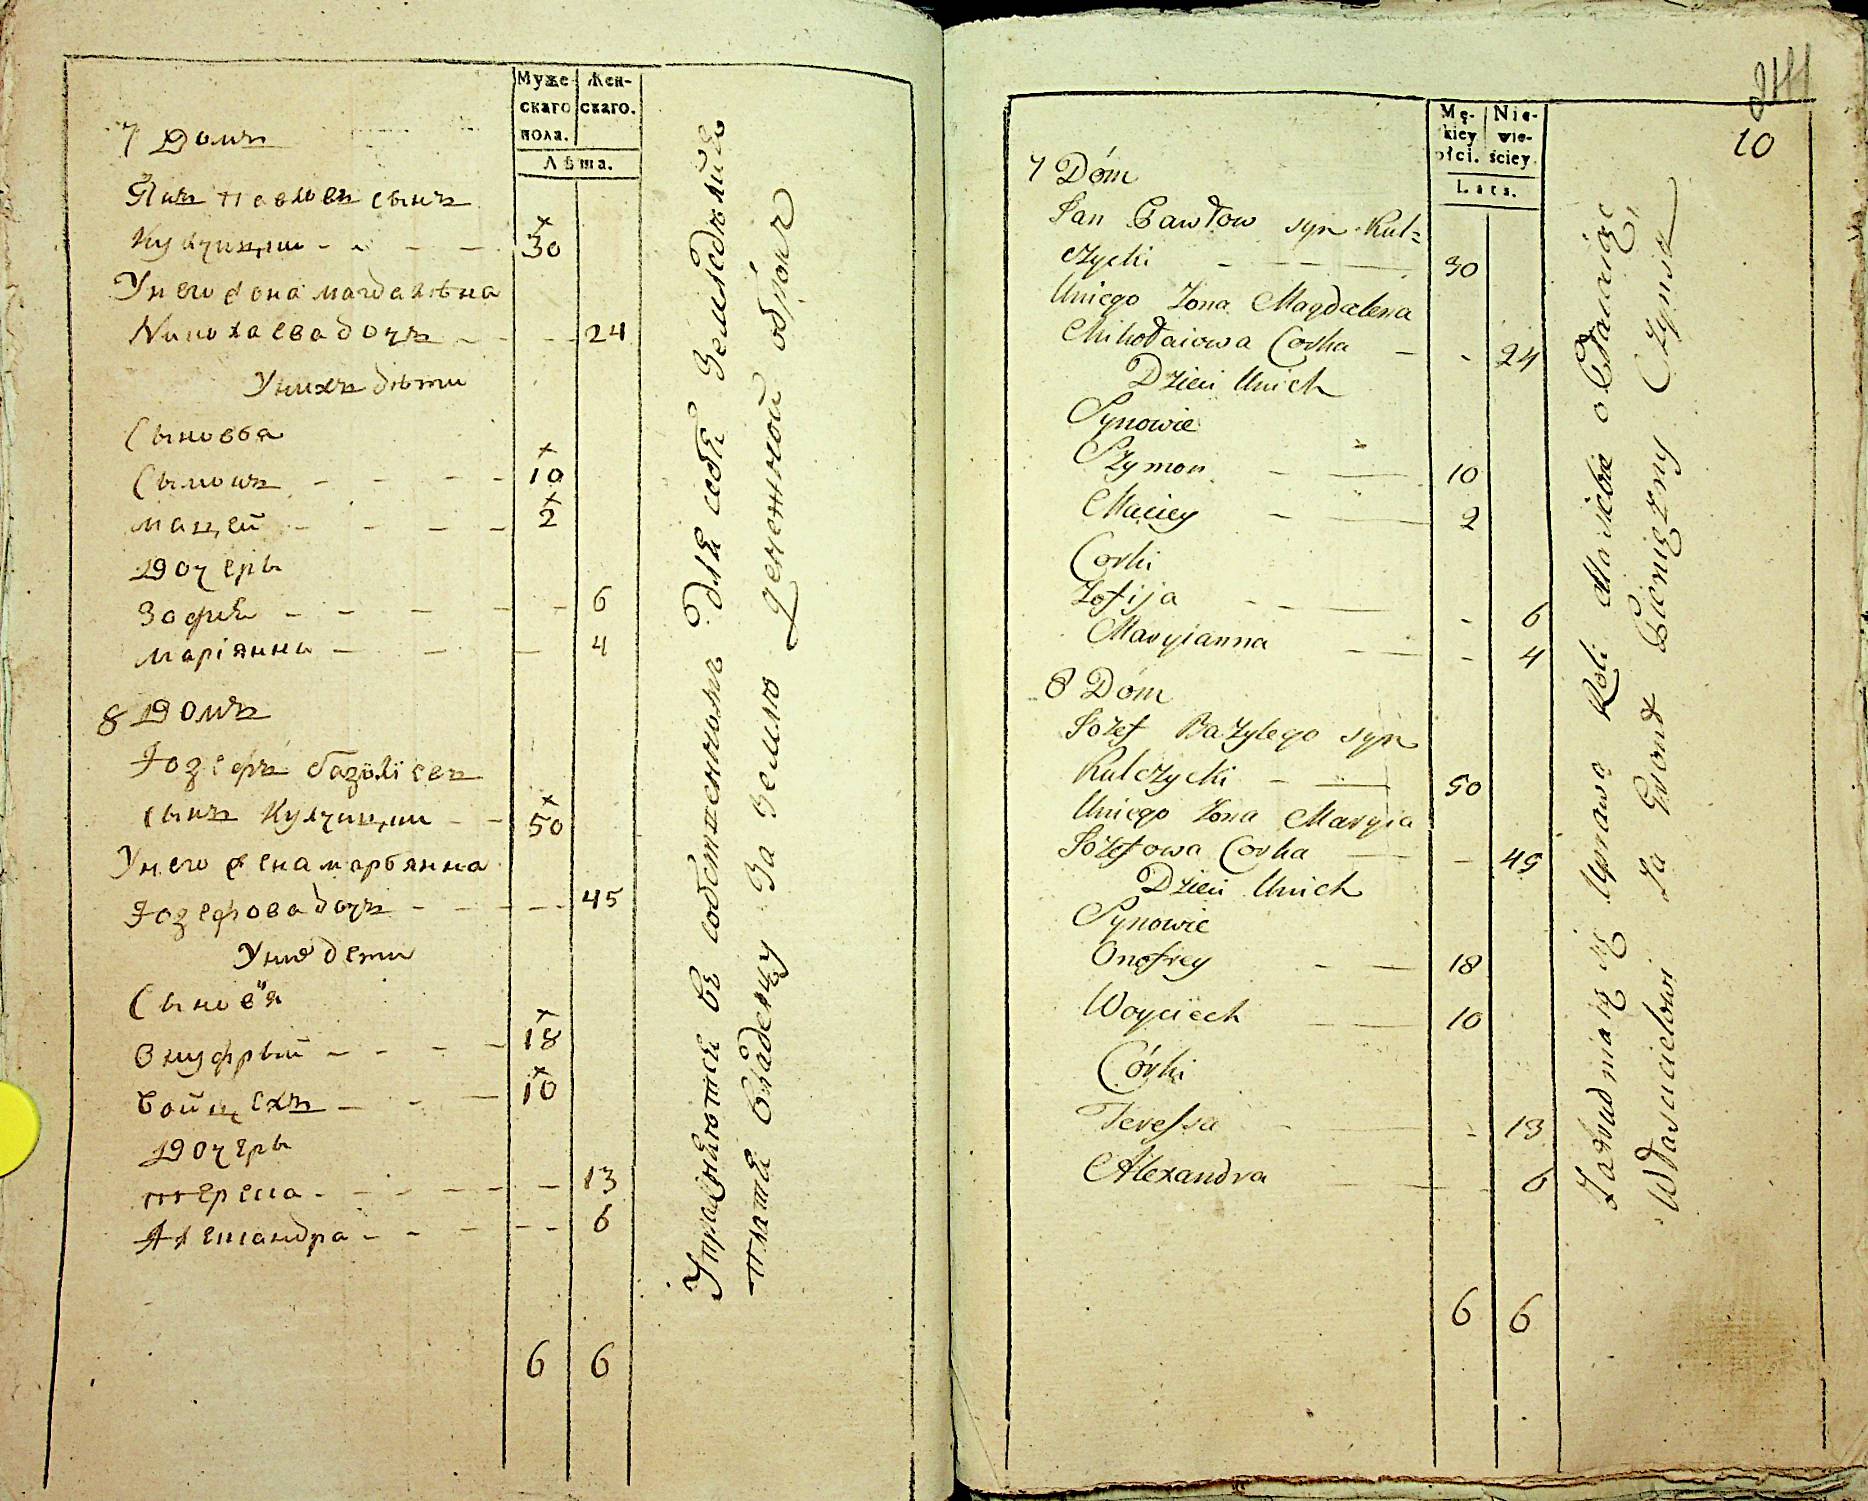 Муже-
скаго
пола.
Жен-
скаго.
Лѣта.
7 Домъ
Янъ Павловъ сынъ
Кулчицки 30
У него жена магдалѣна
Миколаева дочъ 24
У нихъ дѣти
Сыновья
Сымонъ 10
мацей 2
Дочеръ
Зофия 6
марiянна 4
8 Домъ
Iозефъ базылiевъ
сынъ Кулчицки 50
У него жена марьянна
Iозефова дочъ 45
У них дети
Сыновя
Энуфрый 18
Войцехъ 10
Дочеръ
тереса 13
Александра 6
6 6
Упражняются въ собственномъ для себя земледѣлии
платя владельцу за землю денежной оброк
244
10
Mę-
kiey
płci.
Nie-
wie-
ściey.
Lata.
7 Dóm
Jan Pawłow syn Kul=
czycki 30
U niego Żona Magdalena
Mikołaiowa Corka 24
Dzieci U nich
Synowie
Szymon 10
Maciey 2
Corki
Zofija 6
Maryianna 4
8 Dóm
Jozef Bazylego syn
Kulczycki 50
U niego Żona Maryia
Jozefowa Corka 45
Dzieci U nich
Synowie
Onofrey 18
Woyciech 10
Córki
Teressa 13
Alexandra 6
6 6
Zatrudniaią się Uprawą Roli dla siebie opłacaiąc
Włascicielowi za Grónt Pieniężny Czynsz